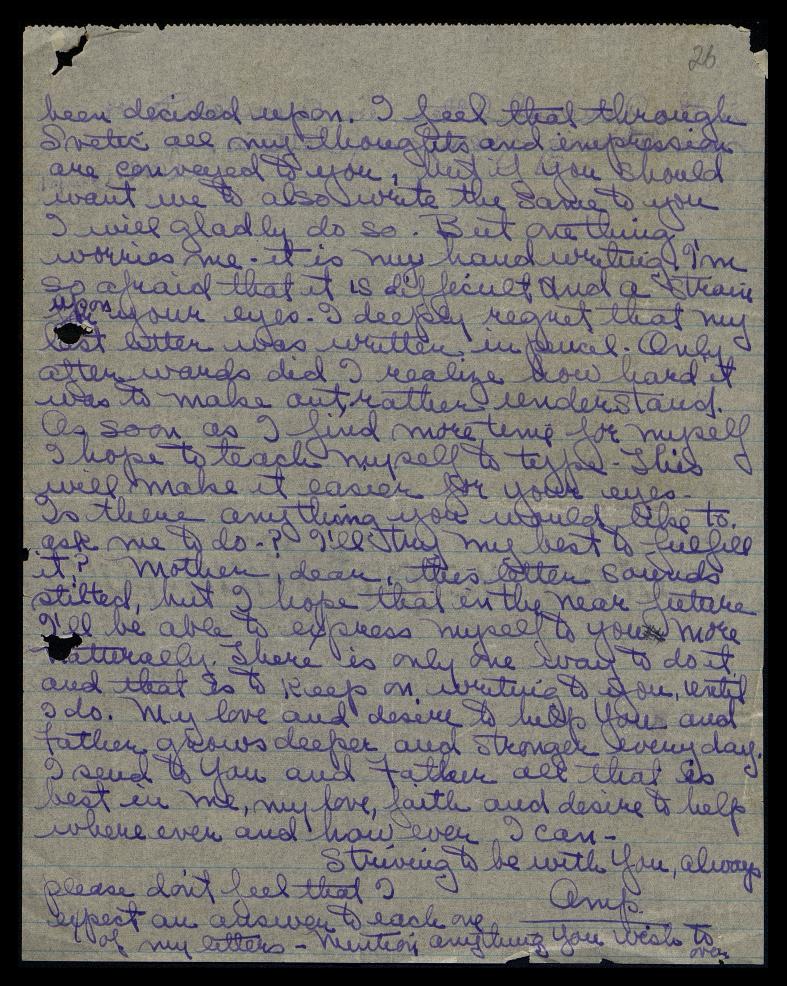 26
been decided upon. I feel that through
Svetic all my thoughts and impression
are conveyed to you, but if you should
want me to also write the same to you
I will gladly do so. But one thing
worries me - it is my handwriting. I'm
so afraid that it is difficult and a strain
upon your eyes. I deeply regret that my
last letter was written in pencil. Only
afterwards did I realize how hard it
was to make out, rather understand.
As soon as I find more time for myself
I hope to teach myself to type - This
will make it easier for your eyes.
Is there anything you would like to
ask me to do-? I'll try my best to fulfill
it? Mother, dear, this letter sounds
stilted, but I hope that in the near future
I'll be able to express myself to you more
naturally. There is only one way to do it
and that is to keep on writing to you, until
I do. My love and desire to help You and
Father grows deeper and stronger every day.
I send to You and Father all that is
best in me, my love, faith and desire to help
where ever and how ever I can -
Striving to be with You, always
Amp.
please don't feel that I
expect an answer to each one
of my letters - Mention anything You wish to
over